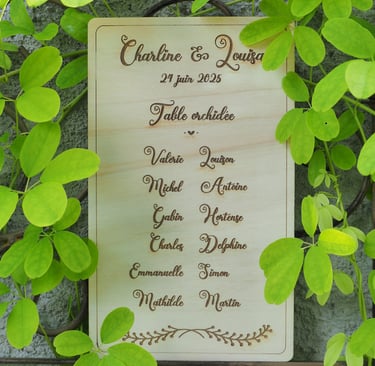 Charline & Louisa
24 juin 2025
Table orchidée
Valérie Louison
Michel Antoine
Gabin Hortense
Charles Delphine
Emmanuelle Simon
Mathilde Martin